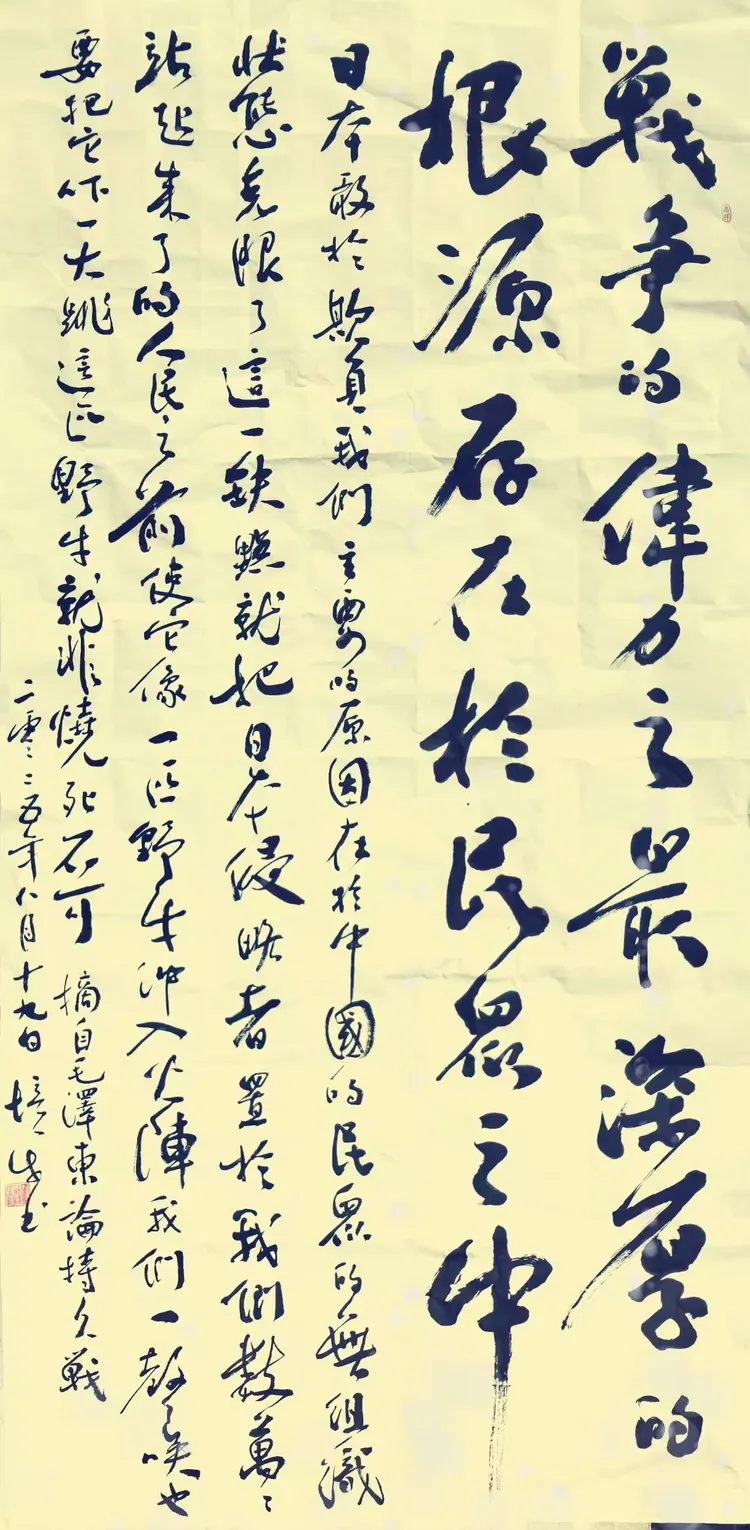 戰爭的偉力之最深厚的
根源存在於民眾之中
日本敢於欺負我們主要的原因在於中國的民眾的無組織
狀態克服了這一缺點就把日本侵略者置於我們數萬萬
站起來了的人民之前使它像一匹野牛沖入火陣我們一聲喚也
要把它吓一大跳這匹野牛就非燒死不可 摘自毛澤東論持久戰
二零二五年八月十九日 书